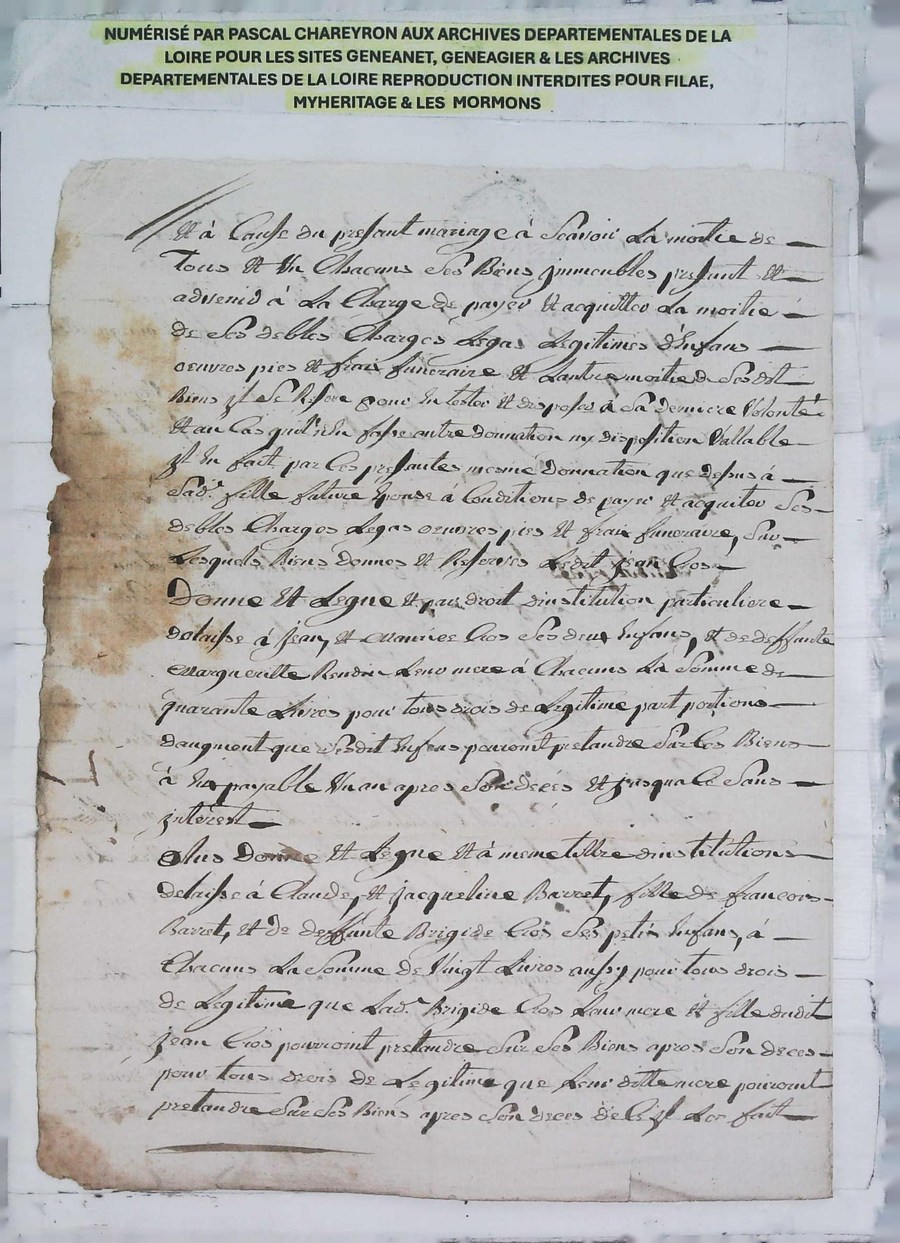 NUMÉRISÉ PAR PASCAL CHAREYRON AUX ARCHIVES DEPARTEMENTALES DE LA
LOIRE POUR LES SITES GENEANET, GENEAGIER & LES ARCHIVES
DEPARTEMENTALES DE LA LOIRE REPRODUCTION INTERDITES POUR FILAE,
MYHERITAGE & LES MORMONS
Et à Cause du presant mariage à Scavoir La moitie de
Tous Et Un Chacuns Ses Biens jmmeubles presant Et
advenir à La Charge de payer Et acquitter La moitié
de Ses debtes Charges Legas Legitimes d'Enfans
oeuvres pies Et frais funeraire Et Lautre moitie de Sesdit
Biens jl Se Reserve pour En tester Et disposer à Sa derniere Volonté
Et au Cas quil n'En fasse autre donnation ny disposition Vallable
jl En fait par Ces presantes mesme donnation que dessus à
Sad.e fille future Epouse à Conditions de payer Et acquiter Ses
debtes Charges Legas oeuvres pies Et frais funeraire, Sur
Lesquels Biens donnes Et Reserves Ledit jean Cros
Donne Et Legue Et par droit dinstitution particuliere
delaisse à Jean, Et Maurice Cros Ses deux Enfans, Et de deffunte
Margueritte Rendin Leur mere à Chacuns La Somme de
quarante Livres pour tous drois de Legitime part portions
daugment que Sesdit Enfans pouront pretandre Sur Ces Biens
à payable Un an apres Son deces Et jusqua Ce Sans
jnterest
Plus Donne Et Legue Et à meme tiltre dinstitutions
delaisse à Claude, Et jacqueline Barret, fille de françois
Barret, Et de deffunte Brigide Cros Ses petis Enfans, à
Chacuns La Somme de Vingt Livres aussy pour tous drois
de Legitime que Lad.e Brigide Cros Leur mere Et fille dudit
jean Cros pourroint pretandre Sur Ses Biens apres Son deces
pour tous drois de Legitime que Leur ditte mere pouroint
pretandre Sur Ses Biens apres Son deces de Ce jl Les fait